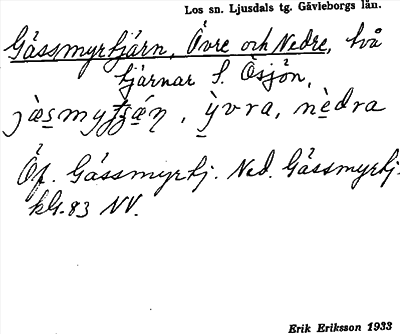 Los sn. Ljusdals tg. Gävleborgs län.
Gåssmyrtjärn, Övre och Nedre, två
tjärnar S. Ösjön,
Öf. Gåssmyrtj. Ned. Gåssmyrtj.
kbl. 83 NV.
Erik Eriksson 1933